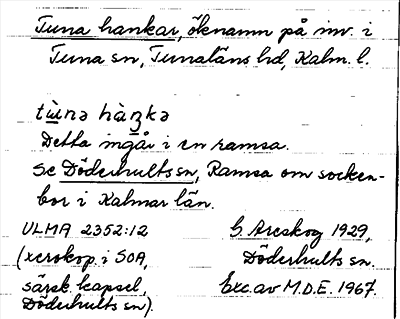 Tuna hankar, öknamn på inv. i
Tuna sn, Tunaläns hd, Kalm. l.
tùnə hàŋkə
Detta ingår i en ramsa.
Se Döderhults sn, Ramsa om socken-
bor i Kalmar län.
ULMA 2352:12 G. Areskog 1929,
(xerokop. i SOA, Döderhults sn.
särsk. kapsel, Exc. av M.D.E. 1967.
Döderhults sn).